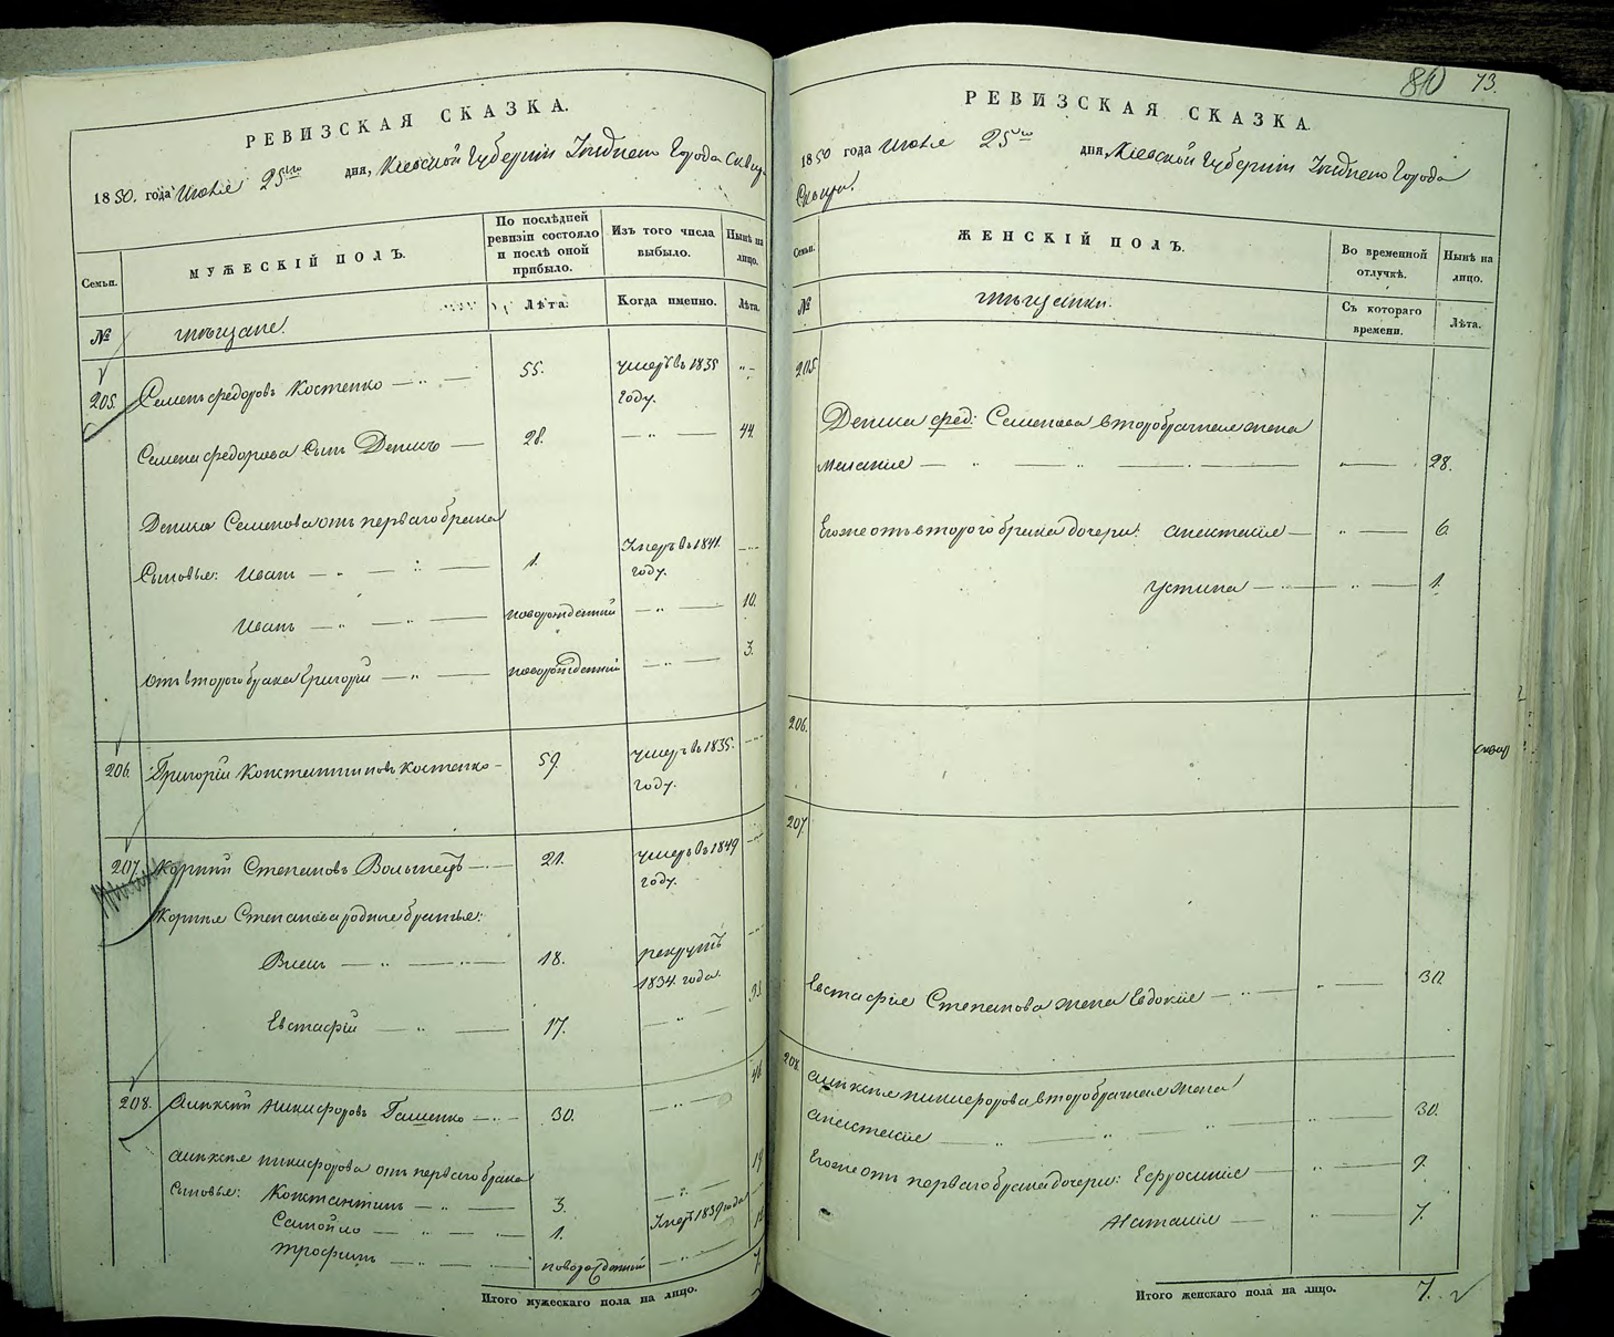 РЕВИЗСКАЯ СКАЗКА.
1850. года Июля 25го дня, Киевской Губернии Уезднаго Города Сквиры
Семьи.
МУЖЕСКІЙ ПОЛЪ.
По послѣдней ревизіи состояло и послѣ оной прибыло.
Изъ того числа выбыло.
Нынѣ на лицо.
№
мѣщане.
Лѣта.
Когда именно.
Лѣта.
205. Семенъ Федоровъ Костенко 55. умеръ въ 1835 году.
Семена Федорова Сынъ Денисъ 28. 44.
Дениса Семенова отъ перваго брака
Сыновья: Иванъ 1. Умеръ въ 1841. году.
Иванъ новорожденный 10.
отъ втораго брака Григорій новорожденный 3.
206. Григорій Константиновъ Костенко 59. умеръ въ 1835. году.
207. Корнѣй Степановъ Волынецъ 21. умеръ въ 1849 году.
Корнѣя Степанова родные братья:
18. рекрутъ 1834. года.
Евстафій 17. 33.
208. Алексѣй Никифоровъ 30. 46.
Алексѣя Никифорова отъ перваго брака
Сыновья: Константинъ 3. 19
Самойло 1. Умеръ 1839 года
Трофимъ новорожденный
Итого мужескаго пола на лицо.
80 73.
РЕВИЗСКАЯ СКАЗКА.
1850 года Июля 25го дня, Киевской Губернии Уезднаго Города
Сквиры.
Семьи.
ЖЕНСКІЙ ПОЛЪ.
Во временной отлучкѣ.
Нынѣ на лицо.
№
мѣщанки.
Съ котораго времени.
Лѣта.
205.
Дениса Семенова второбрачная жена
Меланія 28.
Его же отъ втораго брака дочери: Анастасія 6.
Устина 1.
206.
207.
Евстафія Степанова жена Евдокія 30.
208. Алексѣя Никифорова второбрачная жена
Анастасія 30.
Его же отъ перваго брака дочери: Ефросинія 9.
Наталія 7.
Итого женскаго пола на лицо. 7.